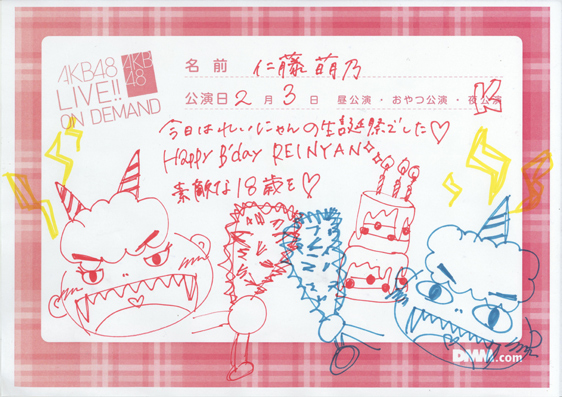 AKB48
LIVE!!
ON DEMAND
AKB
48
名前 仁藤萌乃
公演日 2 月 3 日 昼公演・おやつ公演・夜公演
今日はれいにゃんの生誕祭でした♡
Happy B'day REINYAN
素敵な18歳を♡
DMM.com